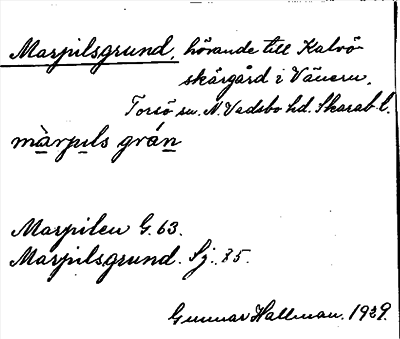 Marpilsgrund, hörande till Kalvö
skärgård i Vänern,
Torsö sn. N. Vadsbo hd. Skarab. l.
màrpils grán
Marpilen G. 63.
Marpilsgrund. Sj. 85.
Gunnar Hallman. 1929.